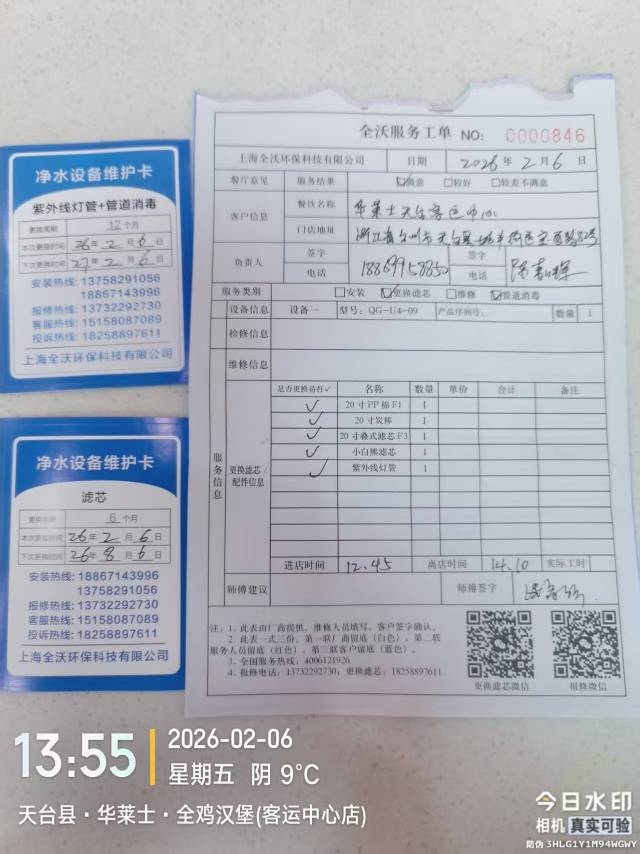 净水设备维护卡
紫外线灯管+管道消毒
更换周期 12 个月
本次更换时间 26年 2 月 6 日
下次更换时间 27年 2 月 6 日
安装热线: 13758291056
18867143996
报修热线: 13732292730
客服热线: 15158087089
投诉热线: 18258897611
上海全沃环保科技有限公司
净水设备维护卡
滤芯
更换周期 6 个月
本次更换时间 26年 2 月 6 日
下次更换时间 26年 8 月 6 日
安装热线: 18867143996
13758291056
报修热线: 13732292730
客服热线: 15158087089
投诉热线: 18258897611
上海全沃环保科技有限公司
全沃服务工单 NO: 0000846
上海全沃环保科技有限公司 日期 2026 年 2 月 6 日
餐厅意见 服务结果 ☑满意 □较好 □较差不满意
客户信息 餐饮名称 华莱士天台客运中心
门店地址 浙江省台州市天台县
负责人 签字 签字
电话 18869958850 电话
服务类别 □安装 ☑更换滤芯 □维修 ☑管道消毒
设备信息 设备一 型号: QG-U4-09 产品序列号: 数量 1
检修信息
维修信息
服务信息
更换滤芯/配件信息
是否更换请打✓ 名称 数量 单价 合计 备注
✓ 20寸PP棉F1 1
✓ 20寸炭棒 1
✓ 20寸叠式滤芯F3 1
✓ 小白熊滤芯 1
✓ 紫外线灯管 1
进店时间 12.45 离店时间 14.10 实际工时
师傅建议 师傅签字
注: 1. 此表由厂商提供, 维修人员填写, 客户签字确认。
2. 此表一式三份, 第一联厂商留底(白色), 第二联
服务人员留底(红色), 第三联客户留底(蓝色)。
3. 全国服务热线: 4006121926
4. 报修电话: 13732292730; 更换滤芯: 18258897611
更换滤芯微信 报修微信
13:55
2026-02-06
星期五 阴 9°C
天台县·华莱士·全鸡汉堡(客运中心店)
今日水印
相机 真实可验
防伪 3HLG1Y1M94WGWY